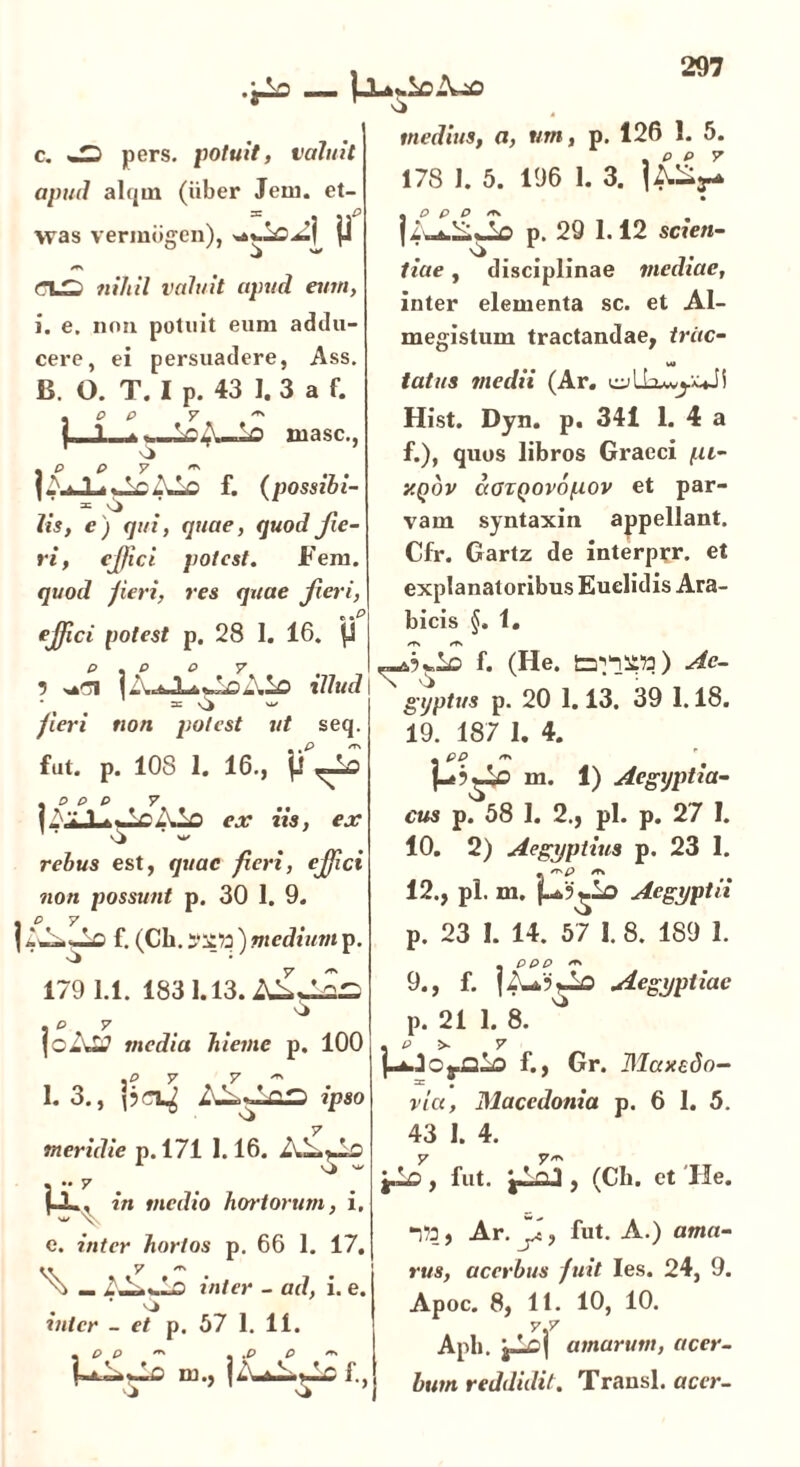 297
ܡܬܡܨܝܢܐ — ܡܪ.
c. ܒ pers. potuit, valuit
apud alqm (über Jem. et-
was vermögen), ܠܐ ܐܬܡܨܝ
ܒܗ nihil valuit apud eum,
i. e. non potuit eum addu-
cere, ei persuadere, Ass.
B. O. T. I p. 43 l. 3 a f.
ܡܬܡܨܝܢܐ masc.,
ܡܬܡܨܝܢܝܬܐ f. (possibi-
lis, e) qui, quae, quod fie-
ri, effici potest. Fem.
quod fieri, res quae fieri,
effici potest p. 28 l. 16. ܠܐ
ܡܬܡܨܝܢܝܬܐ ܗܝ ܕ illud
fieri non potest ut seq.
fut. p. 108 l. 16., ܡܢ ܠܐ
ܡܬܡܨܝܢܝܬܐ ex iis, ex
rebus est, quae fieri, effici
non possunt p. 30 l. 9.
ܡܨܥܬܐ f. (Ch. מצע) medium p.
179 l.1. 183 l.13. ܒܡܨܥܬ
ܣܬܘܐ media hieme p. 100
l. 3., ܒܡܨܥܬ ܛܗܪܐ ipso
meridie p.171 l.16. ܡܨܥܬ
ܓܢ̈ܐ in medio hortorum, i.
e. inter hortos p. 66 l. 17.
ܡܨܥܬ – ܠ inter - ad, i. e.
inter - et p. 57 l. 11.
ܡܨܥܝܐ m., ܡܨܥܝܬܐ f.,
medius, a, um, p. 126 l. 5.
178 l. 5. 196 l. 3. ܝܕܥܬܐ
ܡܨܥܝܬܐ p. 29 l.12 scien-
tiae, disciplinae mediae,
inter elementa sc. et Al-
megistum tractandae, trac-
tatus medii (Ar. المتوسطات
Hist. Dyn. p. 341 l. 4 a
f.), quos libros Graeci μι-
κρὸν ἀστρονόμον et par-
vam syntaxin appellant.
Cfr. Gartz de interprr. et
explanatoribus Euclidis Ara-
bicis §. 1.
ܡܨܪܝܢ f. (He. מצרים) Ae-
gyptus p. 20 l.13. 39 l.18.
19. 187 l. 4.
ܡܨܪܝܐ m. 1) Aegyptia-
cus p. 58 l. 2., pl. p. 27 l.
10. 2) Aegyptius p. 23 l.
12., pl. m. ܡܨܪܝܐ Aegyptii
p. 23 l. 14. 57 l. 8. 189 l.
9., f. ܡܨܪܝܬܐ Aegyptiae
p. 21 l. 8.
ܡܩܕܘܢܝܐ f., Gr. Μακεδο-
νία, Macedonia p. 6 l. 5.
43 l. 4.
ܡܪ, fut. ܢܡܪ, (Ch. et He.
מר, Ar. مر, fut. A.) ama-
rus, acerbus fuit Ies. 24, 9.
Apoc. 8, 11. 10, 10.
Aph. ܐܡܪ amarum, acer-
bum reddidit. Transl. acer-